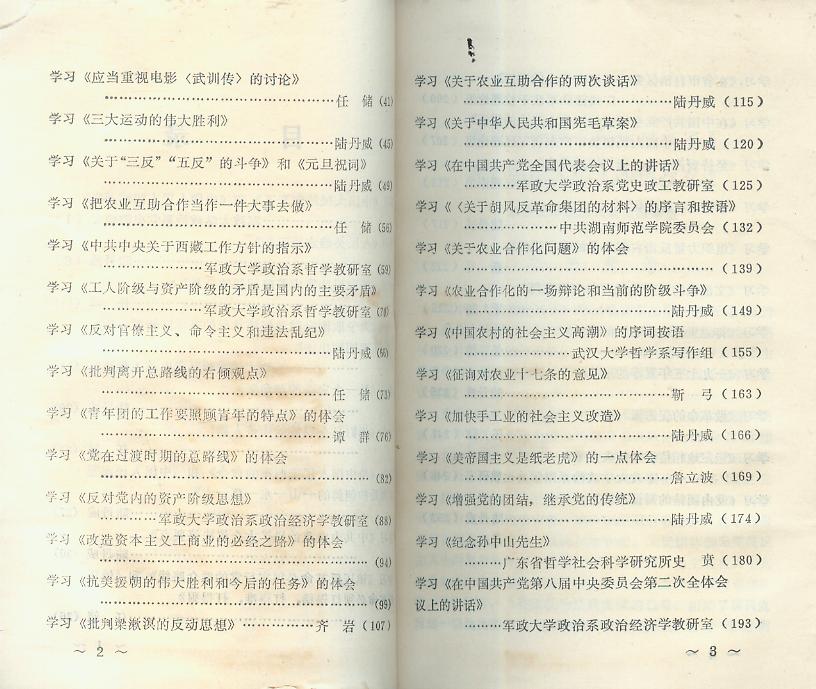 学习《应当重视电影〈武训传〉的讨论》
……………………………任　储(41)
学习《三大运动的伟大胜利》
……………………………陆丹威(45)
学习《关于“三反”“五反”的斗争》和《元旦祝词》
……………………………陆丹威(49)
学习《把农业互助合作当作一件大事去做》
……………………………任　储(56)
学习《中共中央关于西藏工作方针的指示》
……………军政大学政治系哲学教研室(59)
学习《工人阶级与资产阶级的矛盾是国内的主要矛盾》
……………军政大学政治系哲学教研室(70)
学习《反对官僚主义、命令主义和违法乱纪》
……………………………陆丹威(66)
学习《批判离开总路线的右倾观点》
……………………………任　储(73)
学习《青年团的工作要照顾青年的特点》的体会
……………………………谭　群(76)
学习《党在过渡时期的总路线》的体会
……………………………………(82)
学习《反对党内的资产阶级思想》
…………军政大学政治系政治经济学教研室(88)
学习《改造资本主义工商业的必经之路》的体会
……………………………………(94)
学习《抗美援朝的伟大胜利和今后的任务》的体会
……………………………………(99)
学习《批判梁漱溟的反动思想》…………齐　岩(107)
～ 2 ～
学习《关于农业互助合作的两次谈话》
……………………………陆丹威(115)
学习《关于中华人民共和国宪毛草案》
……………………………陆丹威(120)
学习《在中国共产党全国代表会议上的讲话》
………军政大学政治系党史政工教研室(125)
学习《〈关于胡风反革命集团的材料〉的序言和按语》
……………中共湖南师范学院委员会(132)
学习《关于农业合作化问题》的体会
……………………………………(139)
学习《农业合作化的一场辩论和当前的阶级斗争》
……………………………陆丹威(149)
学习《中国农村的社会主义高潮》的序词按语
………………武汉大学哲学系写作组(155)
学习《征询对农业十七条的意见》
……………………………靳　弓(163)
学习《加快手工业的社会主义改造》
……………………………陆丹威(166)
学习《美帝国主义是纸老虎》的一点体会
……………………………詹立波(169)
学习《增强党的团结，继承党的传统》
……………………………陆丹威(174)
学习《纪念孙中山先生》
………广东省哲学社会科学研究所史　贲(180)
学习《在中国共产党第八届中央委员会第二次全体会
议上的讲话》
………军政大学政治系政治经济学教研室(193)
～ 3 ～